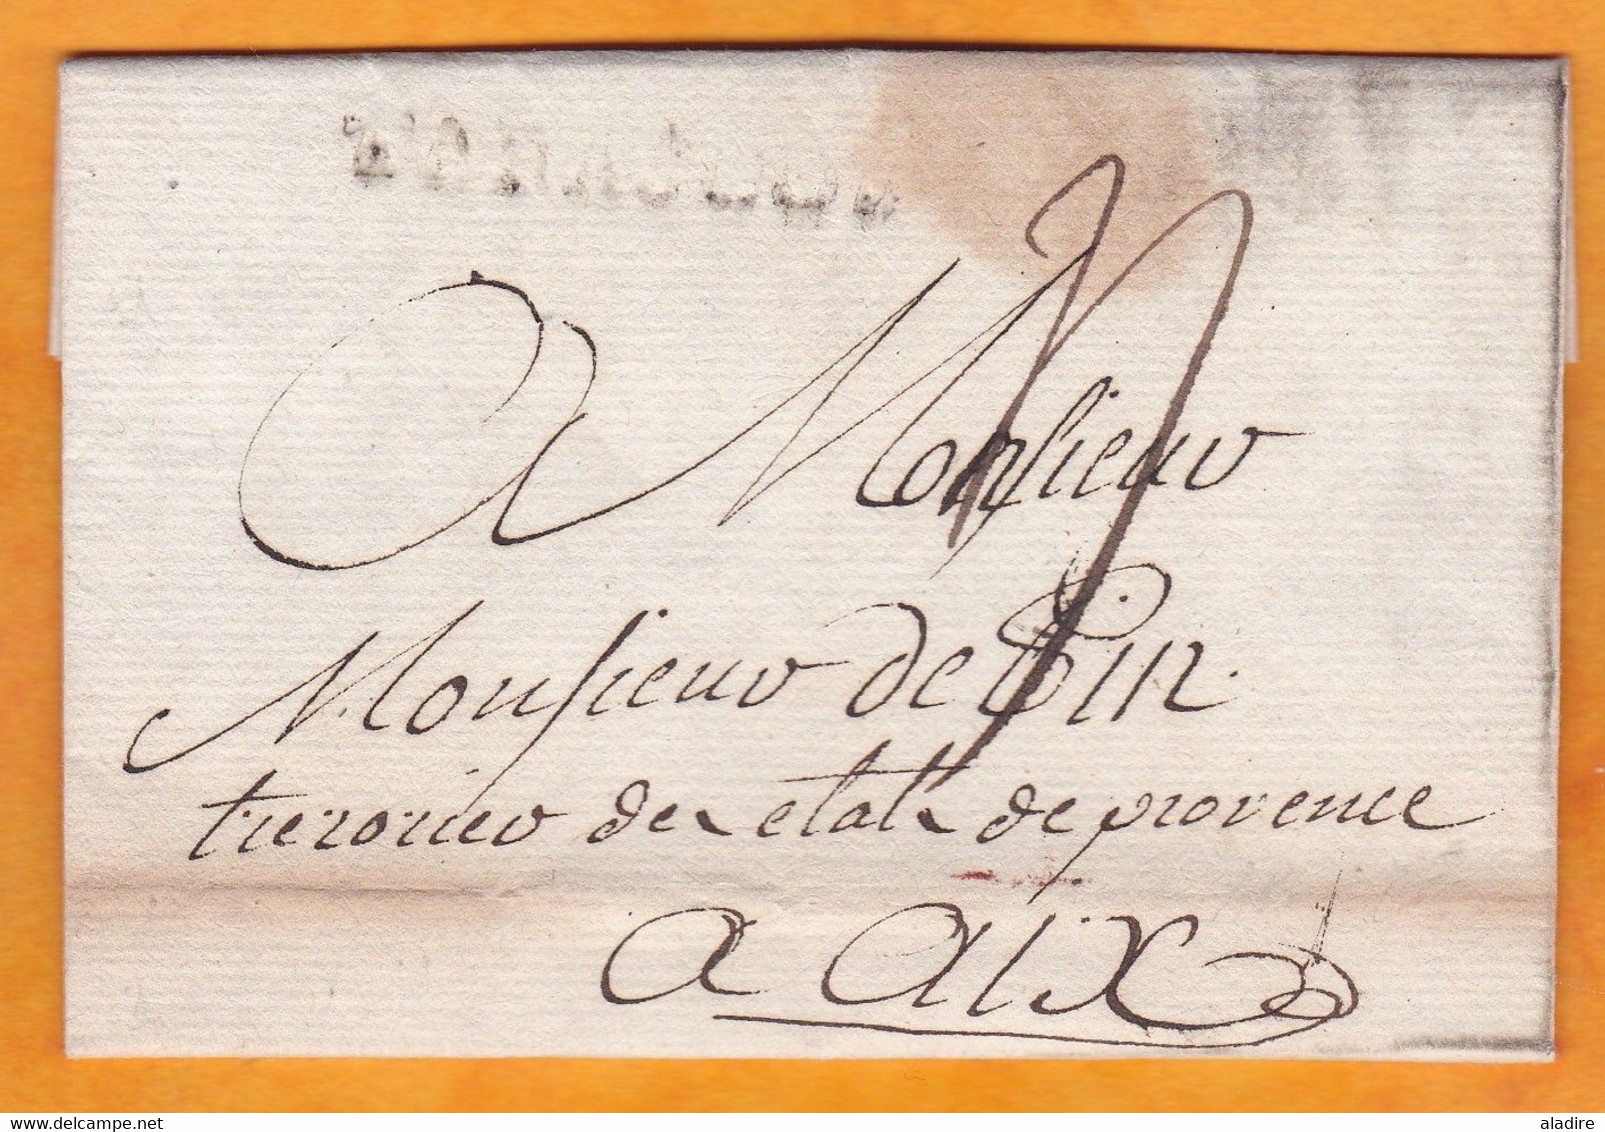 A Monsieur
Monsieur de Pin
trezorier des etats de provence
a Aix
delcampe.net
aladire